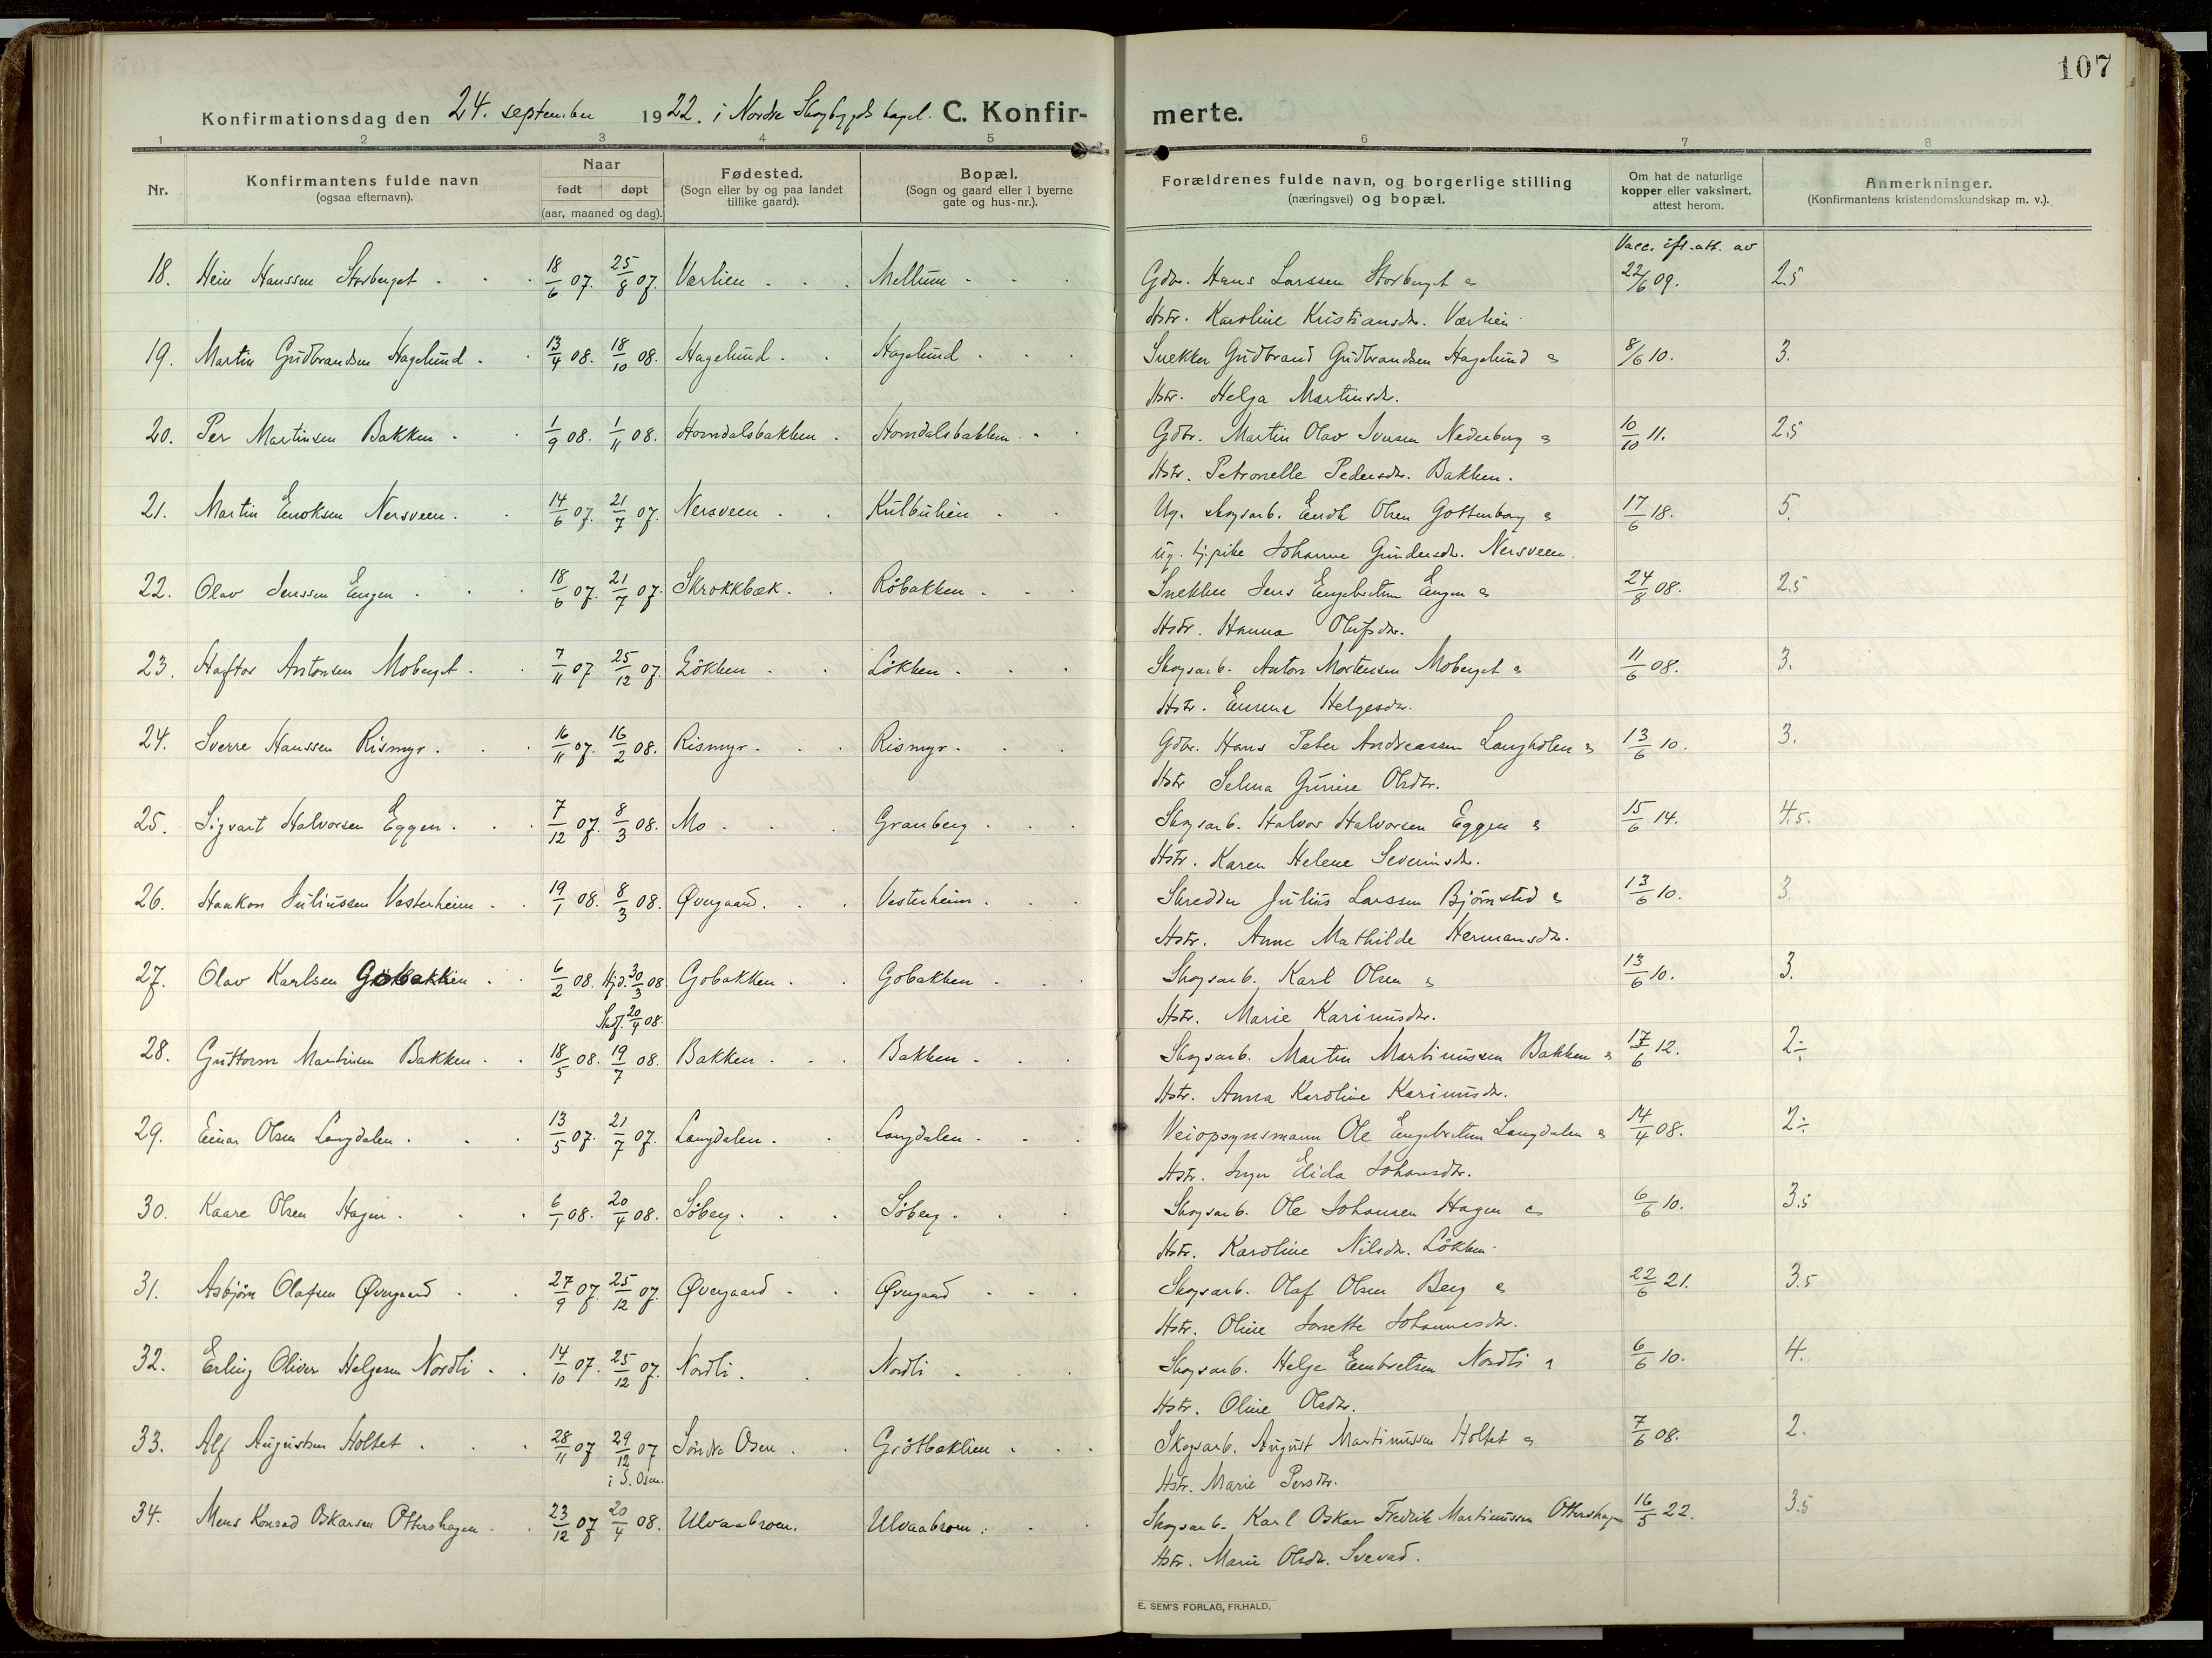 107
Konfirmationsdag den 24. september 1922. i Nordre Skogbygds kapel. C. Konfirmerte.
1 2 3 4 5 6 7 8
Nr.
Konfirmantens fulde navn
(ogsaa efternavn).
Naar
født døpt
(aar, maaned og dag).
Fødested.
(Sogn eller by og paa landet
tillike gaard).
Bopæl.
(Sogn og gaard eller i byerne
gate og hus-nr.).
Forældrenes fulde navn, og borgerlige stilling
(næringsvei) og bopæl.
Om hat de naturlige
kopper eller vaksinert,
attest herom.
Anmerkninger.
(Konfirmantens kristendomskundskap m. v.).
Vacc. ifl. att. av
18. Hein Hanssen Storberget. 18/6 07. 25/8 07. Værlien Mellum Gdbr. Hans Larssen Storberget & 22/6 09. 2.5
Hstr. Karoline Kristiansdtr. Værlien
19. Martin Gudbrandsen Hagelund. 13/4 08. 18/10 08. Hagelund Hagelund Snekker Gudbrand Gudbrandsen Hagelund & 8/6 10. 3.
Hstr. Helga Martinsdtr.
20. Per Martinsen Bakken 1/9 08. 1/11 08. Horndalsbakken Horndalsbakken Gdbr. Martin Olav Iversen Nederberg & 10/10 11. 2.5
Hstr. Petronelle Pedersdtr. Bakken.
21. Martin Enoksen Nersveen. 14/6 07. 21/7 07. Nersveen Kulbulien Ug. skogsarb. Olsen &  17/6 18. 5.
ug. tj.pike Johanne Gundersdtr. Nersveen.
22. Olav Jenssen Engen 18/6 07. 21/7 07. Skrokkbæk. Röbakken Snekker Jens Engebretsen Engen & 24/8 08. 2.5
Hstr. Hanna Olufsdtr.
23. Haftor Antonsen Moberget. 7/11 07 25/12 07. Lökken Lökken Skogsarb. Anton Mortensen Moberget & 11/6 08. 3.
Hstr. Emma Helgesdtr.
24. Sverre Hanssen Rismyr. 16/11 07. 16/2 08. Rismyr Rismyr Gdbr. Hans Peter Andreassen Langholen & 13/6 10. 3.
Hstr Selma Gunine Olsdtr.
25. Sigvart Halvorsen Eggen. 7/12 07. 8/3 08. Mo Granberg Skogsarb. Halvor Halvorsen Eggen & 15/6 14. 4.5.
Hstr. Karen Helene Severinsdtr.
26. Haakon Juliussen Vesterheim 19/1 08. 8/3 08. Øvergaard. Vesterheim Skredder Julius Larssen Bjørnstad & 13/6 10. 3.
Hstr. Anne Mathilde Hermansdtr.
27. Olav Karlsen Gobakken 6/2 08. Hjd. 30/3 08 Gobakken Gobakken Skogsarb. Karl Olsen & 13/6 10. 3.
Stadf. 20/4 08. Hstr. Marie Karinusdtr.
28. Guttorm Martinsen Bakken 18/5 08. 19/7 08. Bakken Bakken Skogsarb. Martin Martinussen Bakken & 17/6 12. 2÷
Hstr. Anna Karoline Karinusdtr.
29. Einar Olsen Langdalen 13/5 07. 21/7 07. Langdalen Langdalen Veiopsynsmann Ole Engebretsen Langdalen & 14/4 08. 2÷
Hstr. Inga Elida Johansdtr.
30. Kaare Olsen Hagen 6/1 08. 20/4 08. Söberg Söberg Skogsarb. Ole Johansen Hagen & 6/6 10. 3.5
Hstr. Karoline Nilsdtr. Lökken.
31. Asbjörn Olafsen Øvergaard 27/9 07. 25/12 07. Øvergaard Øvergaard Skogsarb. Olaf Olsen Berg & 22/6 21. 3.5
Hstr. Oline Josette Johannesdtr.
32. Erling Oliver Helgesen Nordli 14/10 07. 25/12 07. Nordli Nordli Skogsarb. Helge Embretsen Nordli & 6/6 10. 4.
Hstr. Oline Olsdtr.
33. Alf Augustsen Holtet 28/11 07 29/12 07 Söndre Osen Grötbakken Skogsarb. August Martinussen Holtet & 7/6 08. 2.
i S. Osen. Hstr. Marie Persdtr.
34. Mens Konrad Oskarsen Ottershagen 23/12 07 20/4 08. Ulvaabroen. Ulvaabroen. Skogsarb. Karl Oskar Fredrik Martinussen Ottershagen 16/5 22. 3.5
Hstr. Marie Olsdtr. Svevad.
E. SEM'S FORLAG, FR.HALD.